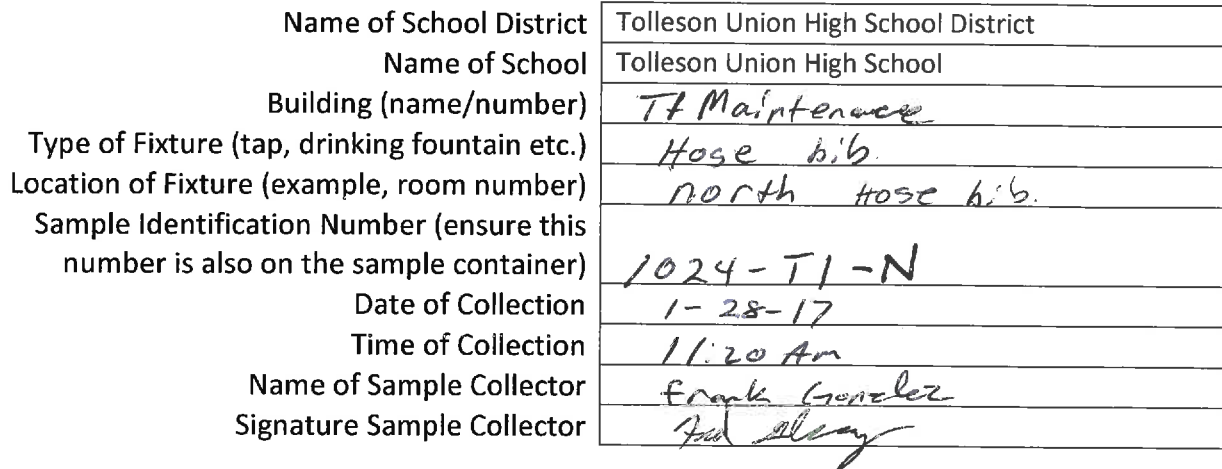 Name of School District Tolleson Union High School District
Name of School Tolleson Union High School
Building (name/number) T1 Maintenance
Type of Fixture (tap, drinking fountain etc.) Hose bib.
Location of Fixture (example, room number) north Hose bib.
Sample Identification Number (ensure this
number is also on the sample container) 1024-T1-N
Date of Collection 1-28-17
Time of Collection 11:20 Am
Name of Sample Collector Frank Gonzlez
Signature Sample Collector